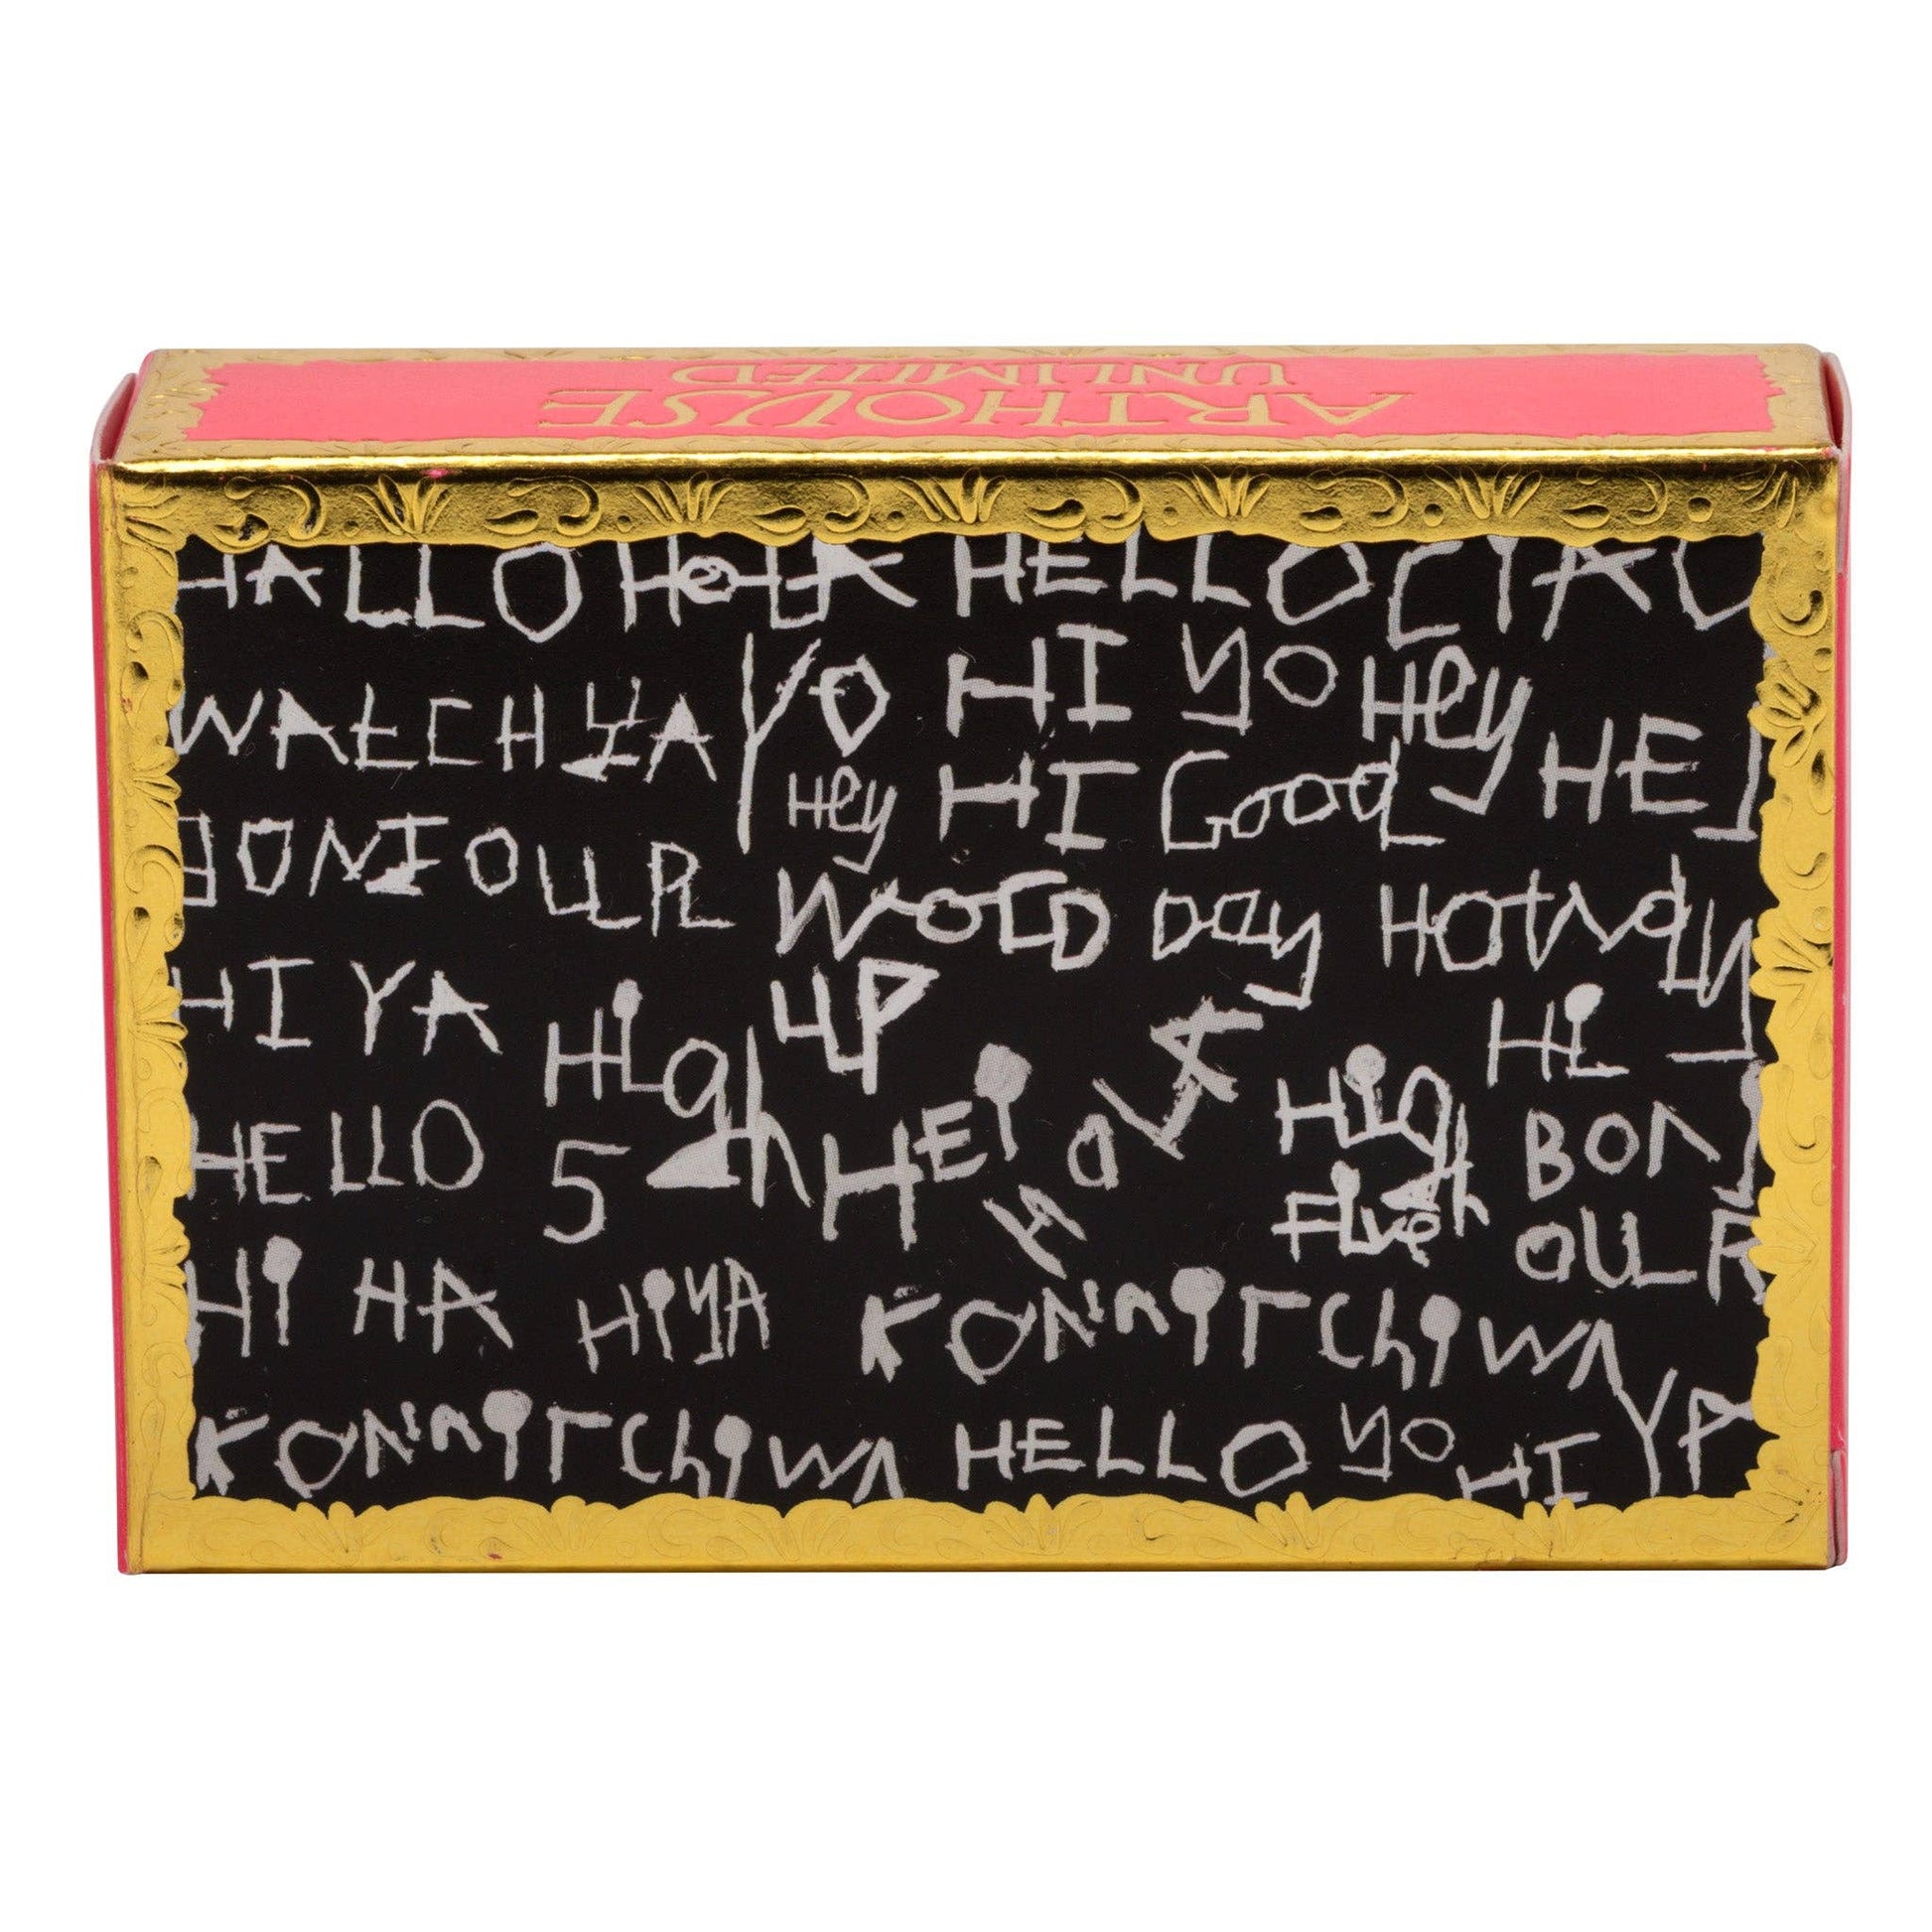 ARTHOUSE
UNLIMITED
HALLO HOLA HELLO CIAO
WATCH YA YO HI YO Hey HEJ
BONJOUR Hey HI Good
WORD Day HOWdy
HI YA High UP Hi
HELLO 5 HEi HOLA High BONJ
Five OUR
Hi HA HiYA KONNiTChiWA
KONNiTChiWA HELLO yo HI YA